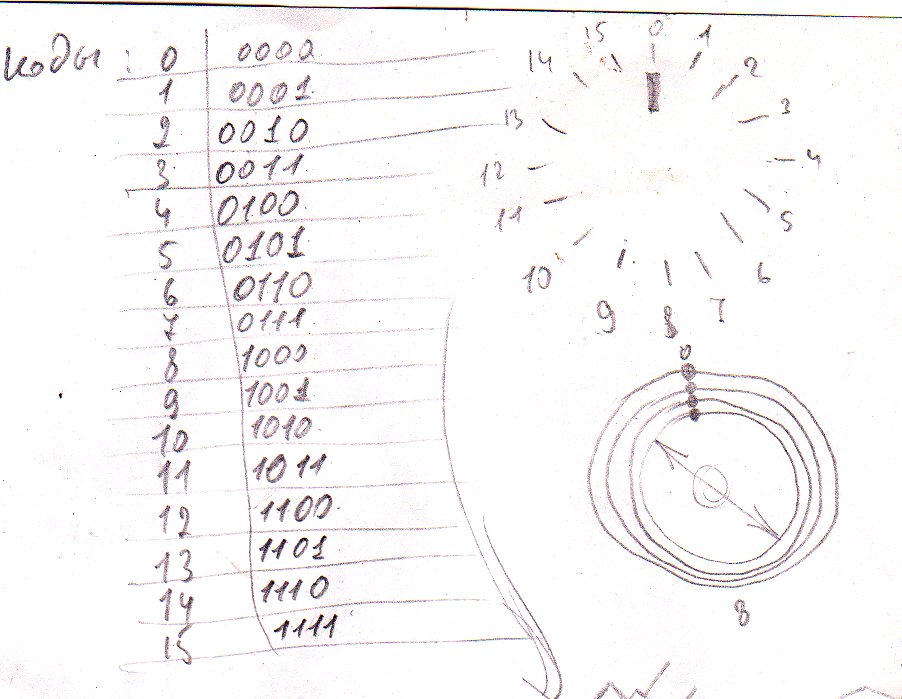 Коды: 0 0000
1 0001
2 0010
3 0011
4 0100
5 0101
6 0110
7 0111
8 1000
9 1001
10 1010
11 1011
12 1100
13 1101
14 1110
15 1111
0 1 2 3 4 5 6 7 8 9 10 11 12 13 14 15
0
8